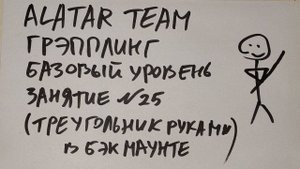 ALATAR TEAM
ГРЭППЛИНГ
БАЗОВЫЙ УРОВЕНЬ
ЗАНЯТИЕ №25
(ТРЕУГОЛЬНИК РУКАМИ
В БЭК МАУНТЕ)